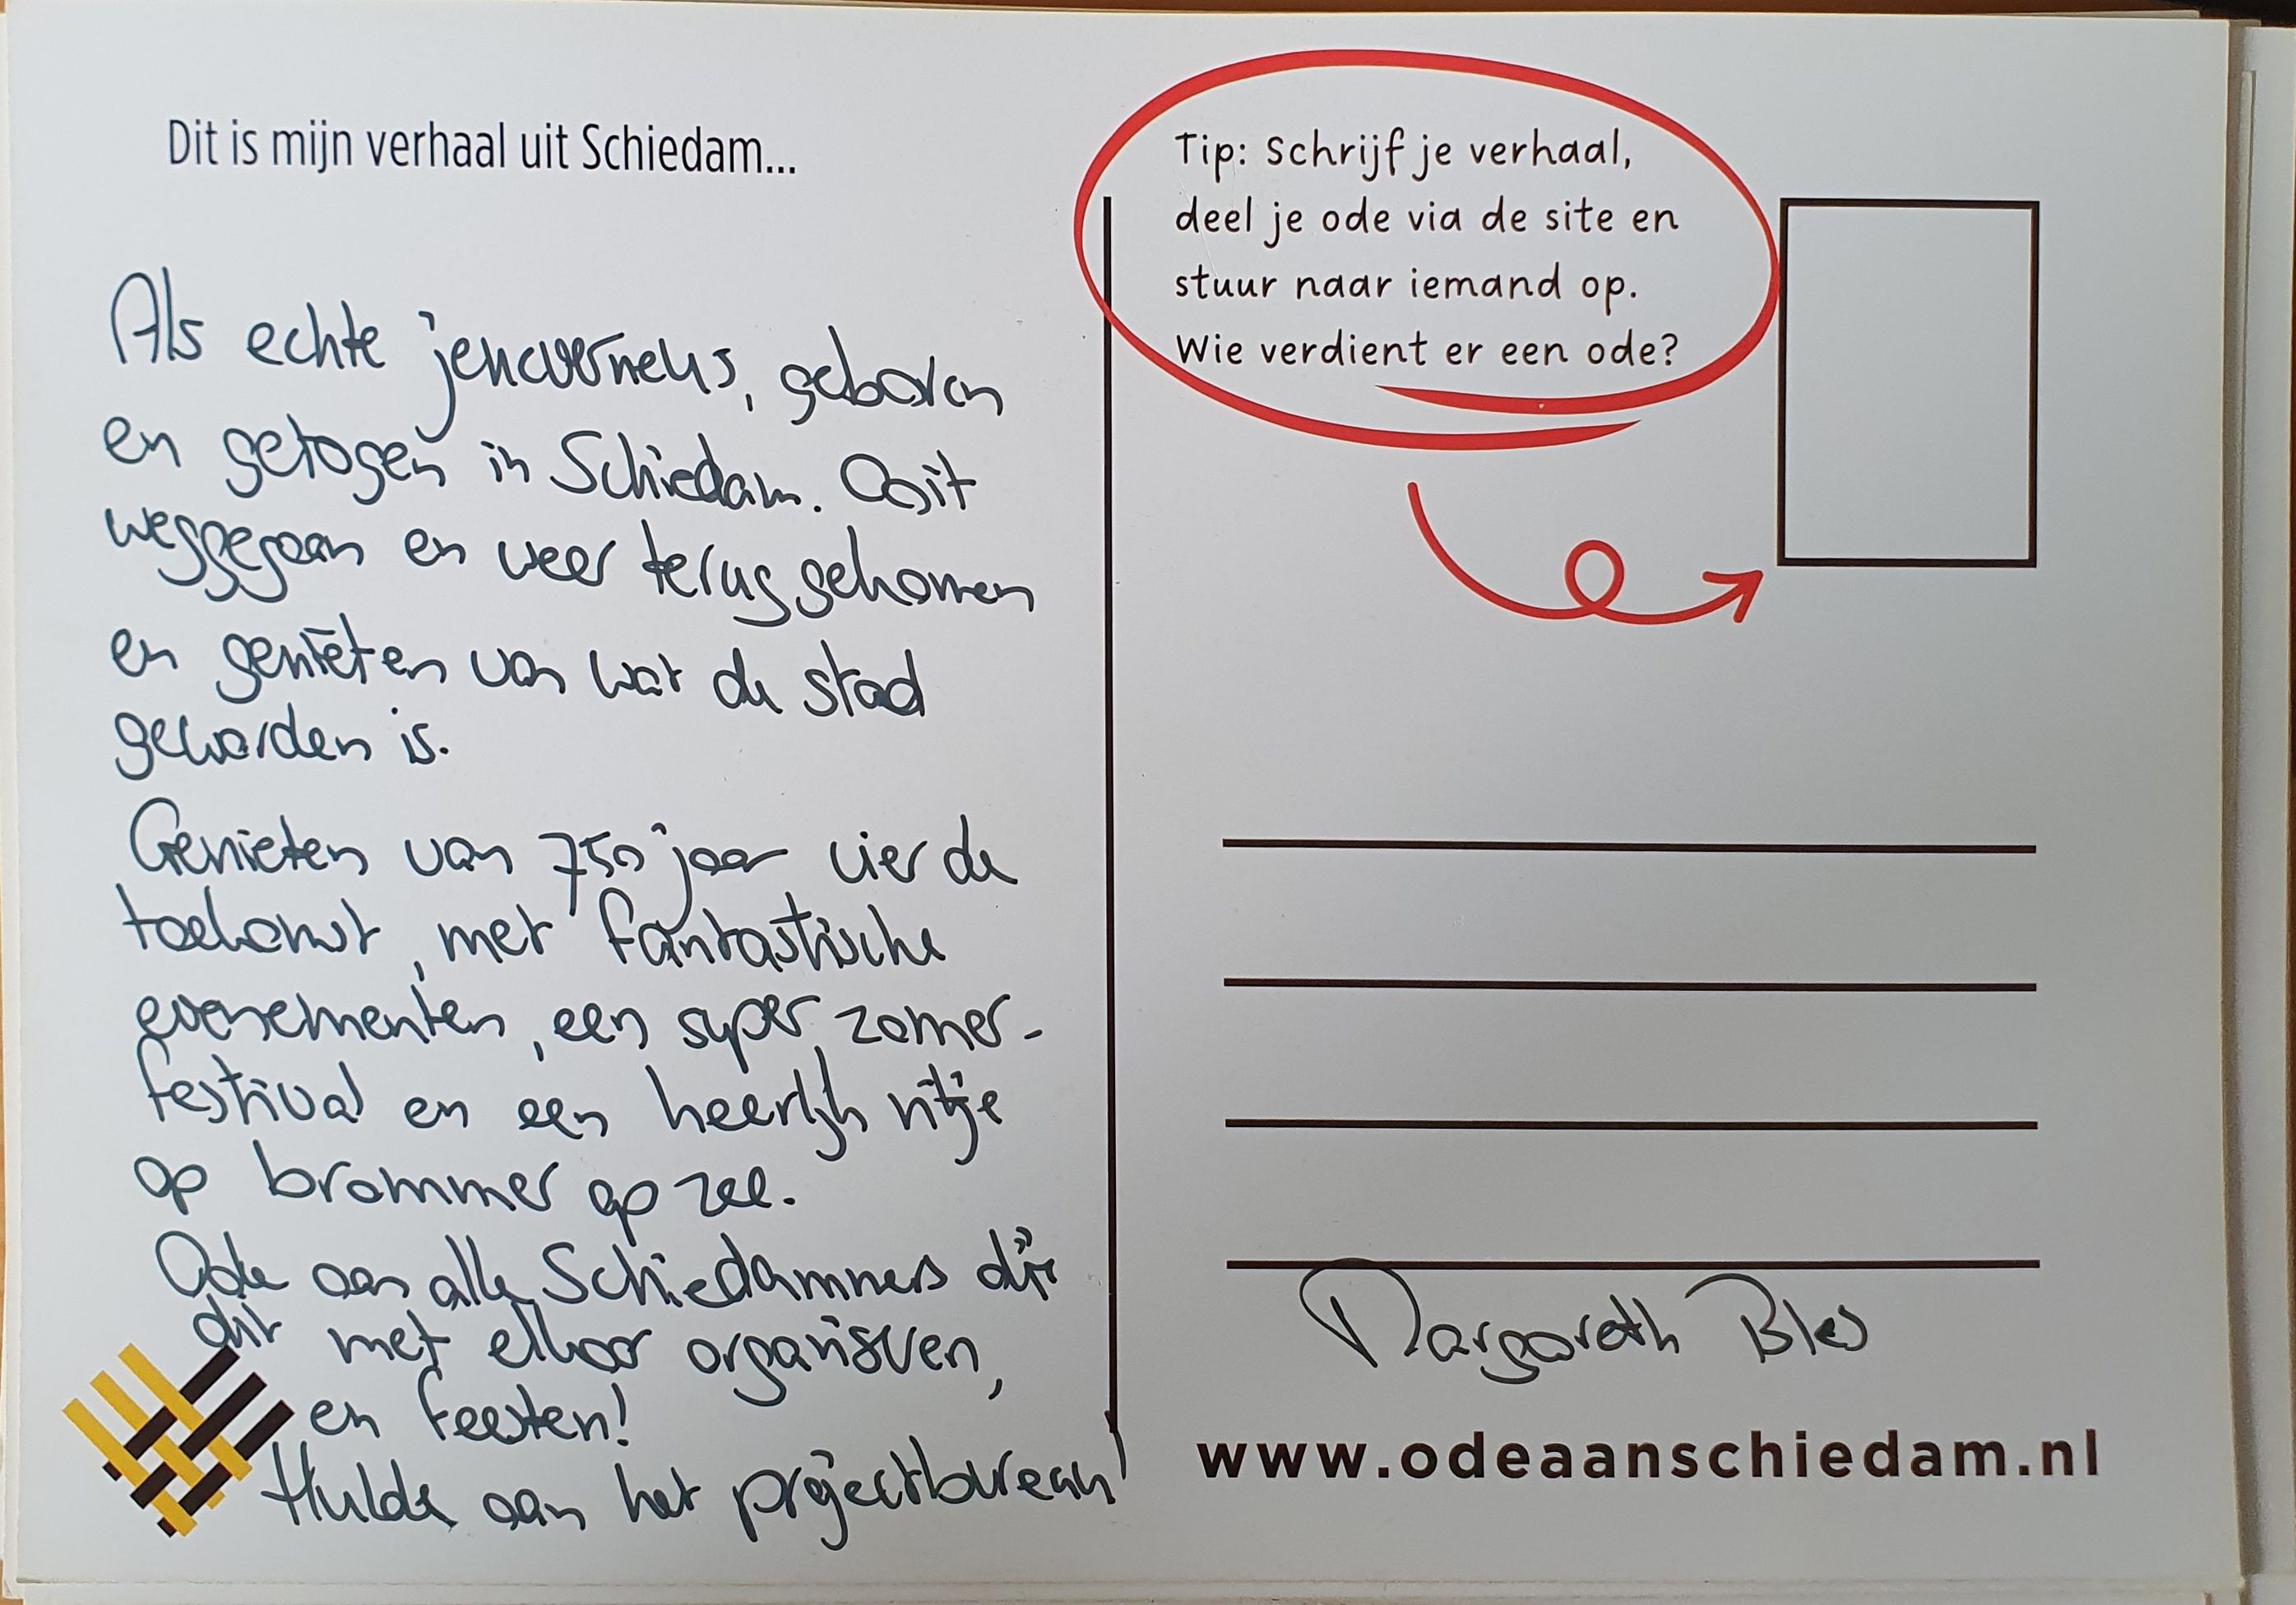 Dit is mijn verhaal uit Schiedam...
Als echte jeneverneus, geboren
en getogen in Schiedam. Ooit
weggegaan en weer terug gekomen
en genieten van wat de stad
geworden is.
Genieten van 750 jaar vier de
toekomst, met fantastische
evenementen, een super zomer-
festival en een heerlijk ritje
op brommer op zee.
Ode aan alle Schiedammers die
dit met elkaar organiseren,
en feesten!
Hulde aan het projectbureau!
Tip: Schrijf je verhaal,
deel je ode via de site en
stuur naar iemand op.
Wie verdient er een ode?
Margareth Bles
www.odeaanschiedam.nl